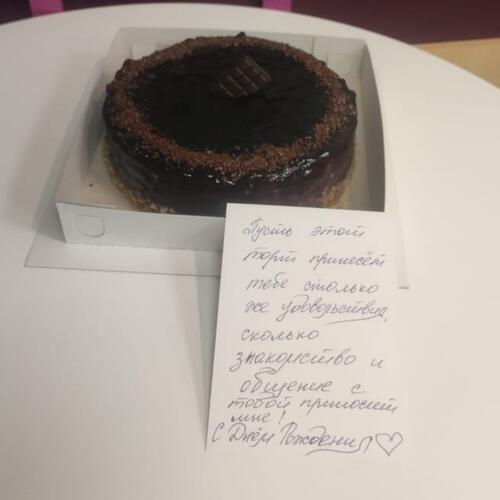 Пусть этот
торт принесёт
тебе столько
же удовольствия,
сколько
знакомство и
общение с
тобой приносит
мне!
С Днём Рождения ♡